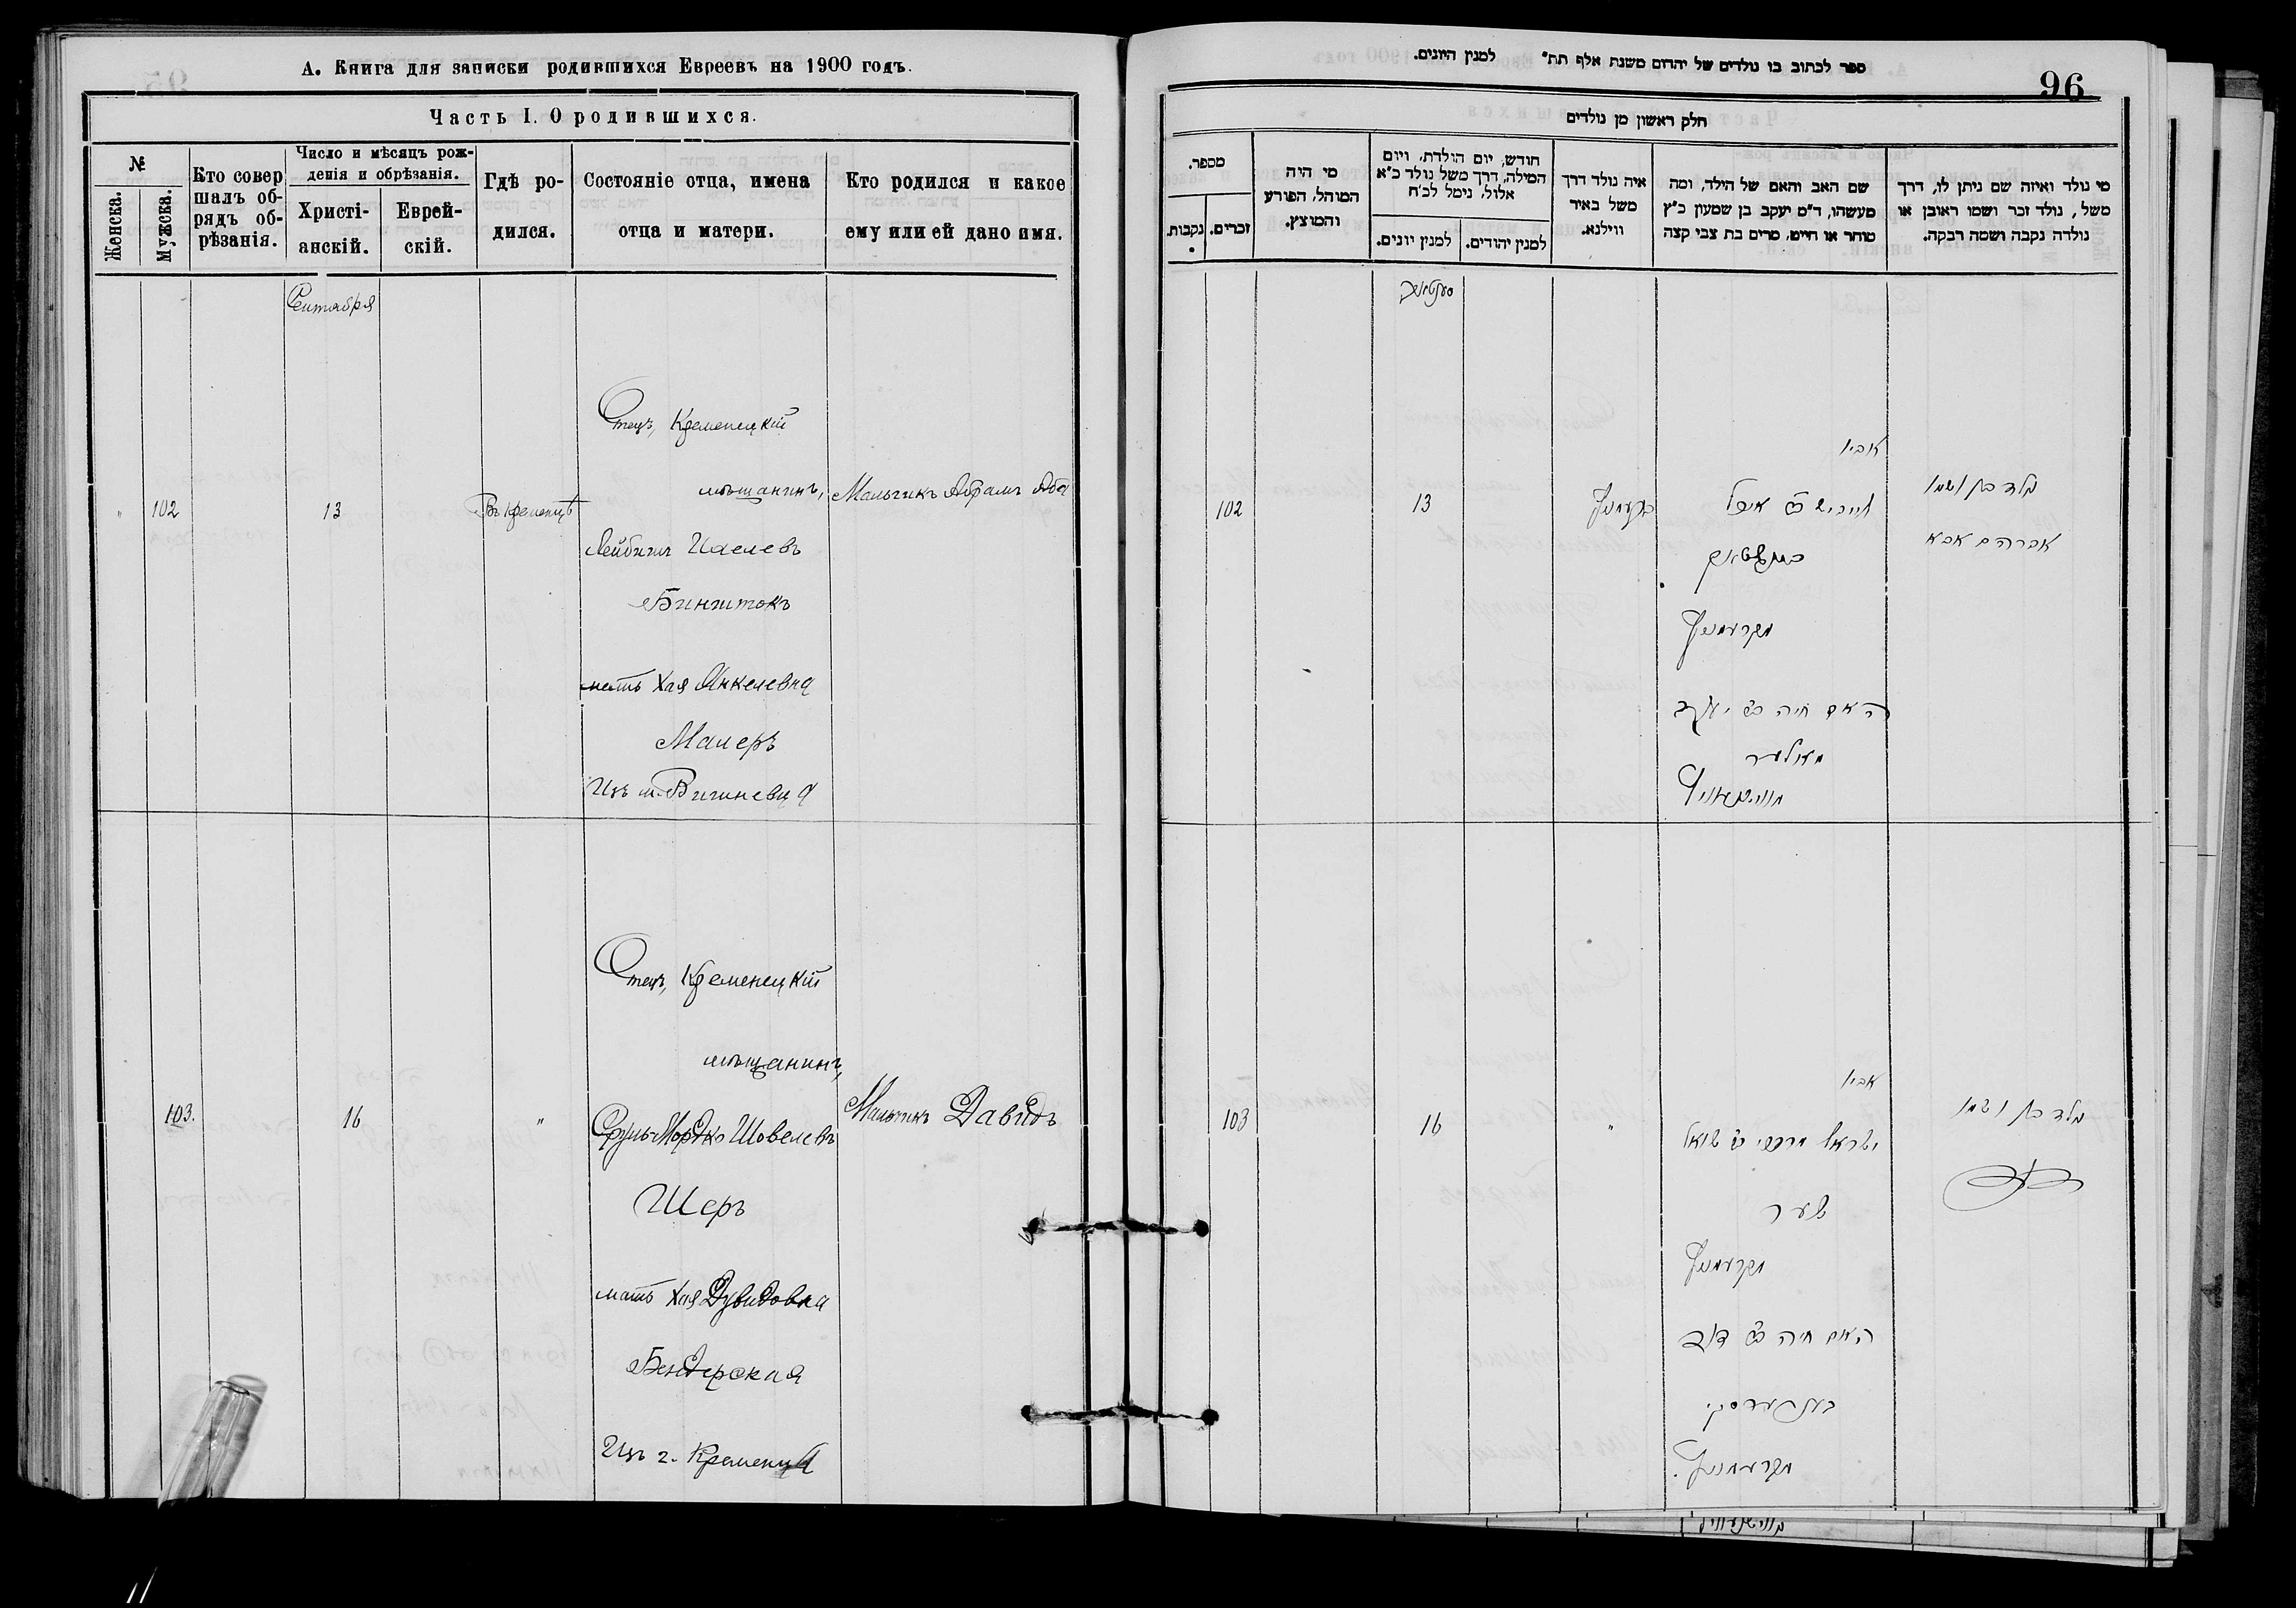 А. Книга для записки родившихся Евреевъ на 1900 годъ.
Часть I. О родившихся.
№
Женска.
Мужска.
Кто совер
шалъ об-
рядъ об-
рѣзанія.
Число и мѣсяцъ рож-
денія и обрѣзанія.
Христі-
анскій.
Еврей-
скій.
Гдѣ ро-
дился.
Состояніе отца, имена
отца и матери.
Кто родился и какое
ему или ей дано имя.
Сентября
102
13
Въ Кременцѣ
Отецъ, Кременецкій
мѣщанинъ,
Лейбишъ
Бинштокъ
мать Хая Янкелевна
Малеръ
Изъ м. Вишневца
Мальчикъ Абрамъ Аба
103.
16
"
Отецъ, Кременецкій
мѣщанинъ,
Сруль Мордко Шовелевъ
Шеръ
мать Хая Дувидовна
Бендерская
Изъ г. Кременца
Мальчикъ Давидъ
ספר לכתוב בו נולדים של יהדים משנת אלף תת״ למנין היונים.
96
חלק ראשון מן נולדים
מספר.
נקבות.
זכרים.
מי היה
המוהל, הפורע
והמוצץ.
חודש, יום הולדת, ויום
המילה, דרך משל נולד כ״א
אלול, נימל לכ״ח
למנין יונים.
למנין יהודים.
איה נולד דרך
משל באיד
ווילנא.
שם האב והאם של הילד, ומה
מעשהו, ד״מ יעקב בן שמעון כ״ץ
סוחר או חייט, מרים בת צבי קצה
מי נולד ואיזה שם ניתן לו, דרך
משל, נולד זכר ושמו ראובן או
נולדה נקבה ושמה רבקה.
102
13
אביו
לייביש
בינשטאק
מקרעמניץ
האם חיה בת יעקב
מאלער
נולד בן ושמו
אברהם אבא
103
16
"
אביו
ישראל מרדכי בן שואל
שער
מקרעמניץ
האם חיה בת דוד
בענדערסקי
מקרעמניץ.
נולד בן ושמו
דוד